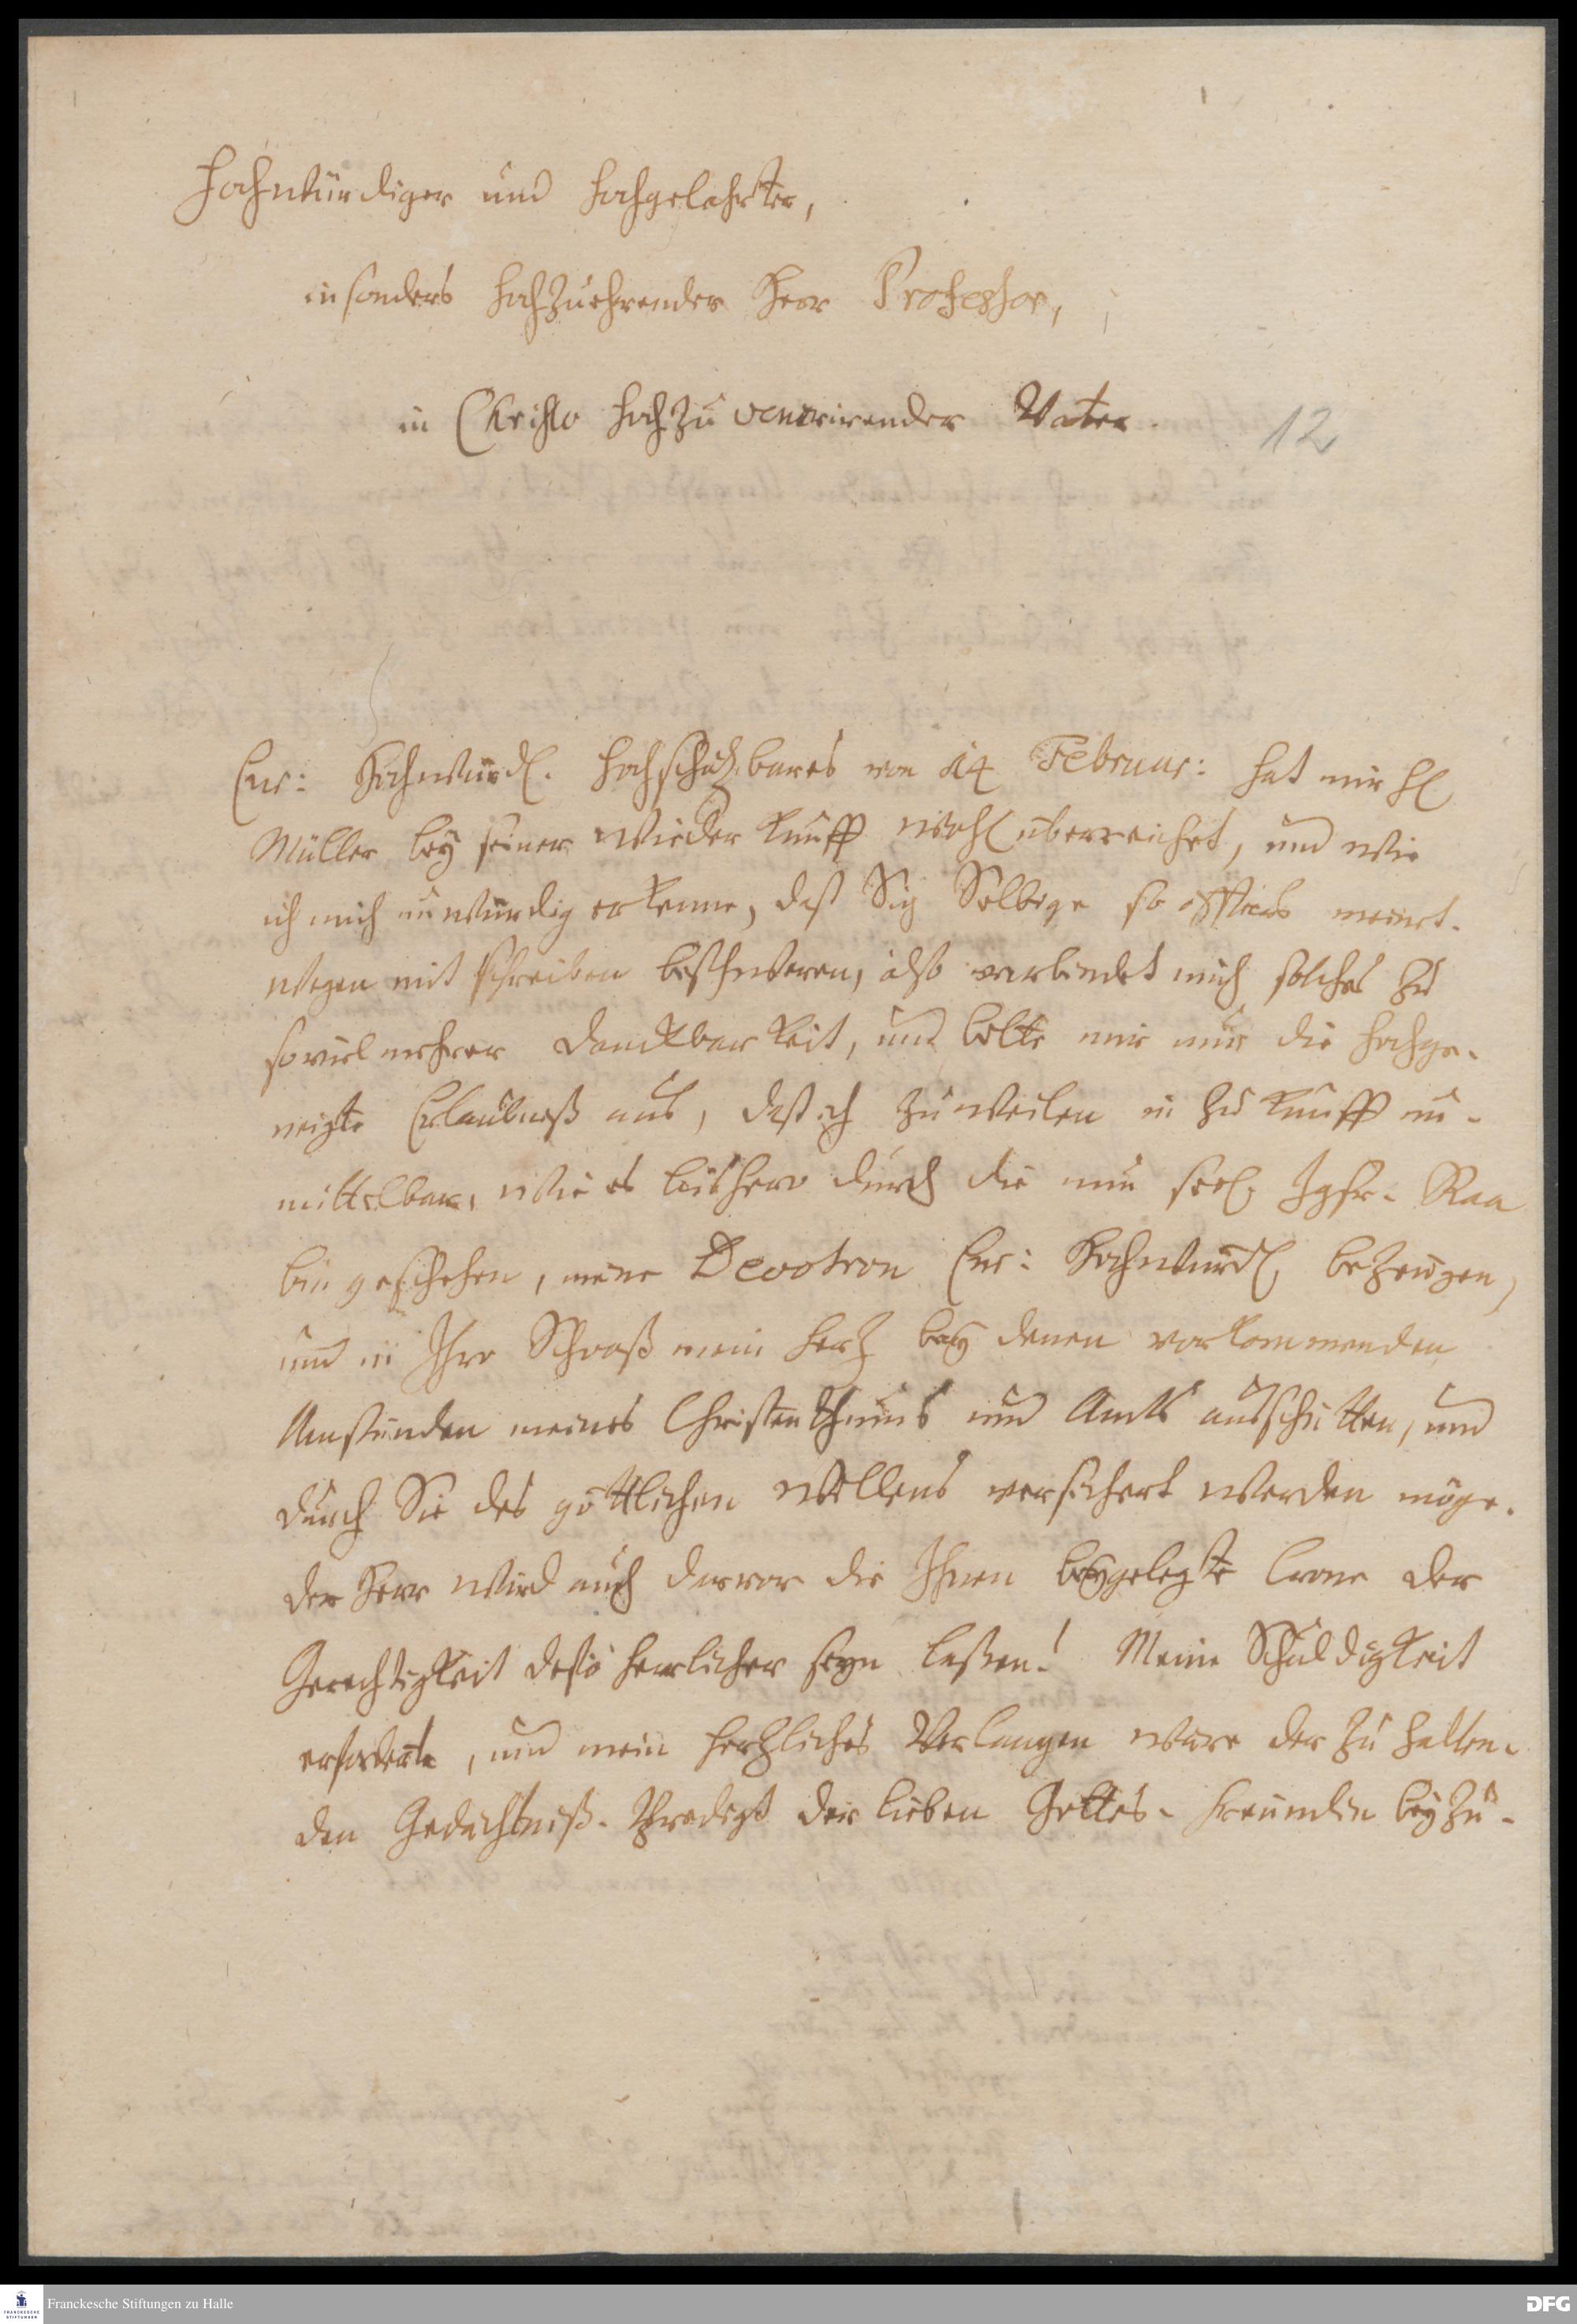 Hochwürdiger und Hochgelahrter,
insonders Hochzuehrender Herr Professor,
in Christo Hochzu venerirender Vater.
12
Eur: Hochwürd. Hochschätzbares von 14 Februar: hat mir H
Müller bey seiner Wiederkunfft wohl überreichet, und wie
ich mich unwürdig erkenne, daß Sie Selbige so öffters meinet-
wegen mit schreiben beschweren, also verbindet mich solches zu
soviel mehrer Danckbarkeit, und bitte mir nur die Hochge-
neigte Erlaubniß aus, daß ich zuweilen in Zukunfft un-
mittelbar, wie es bishero durch die nun seel. Jgfr. Raa
bin geschehen, meine Devotion Eur: Hochwürd. bezeugen,
und in Ihro Schooß mein Hertz bey denen vorkommenden
Umständen meines Christenthums und Amts ausschütten, und
durch Sie des göttlichen Willens versichert werden möge.
Der Herr wird auch davor die Ihnen beygelegte Crone der
Gerechtigkeit desto herrlicher seyn laßen! Meine Schuldigkeit
erforderte, und mein hertzliches Verlangen ware der zu halten-
den Gedächtniß-Predigt der lieben Gottes-Freundin beyzu-
Franckesche Stiftungen zu Halle
FRANCKESCHE
STIFTUNGEN
DFG